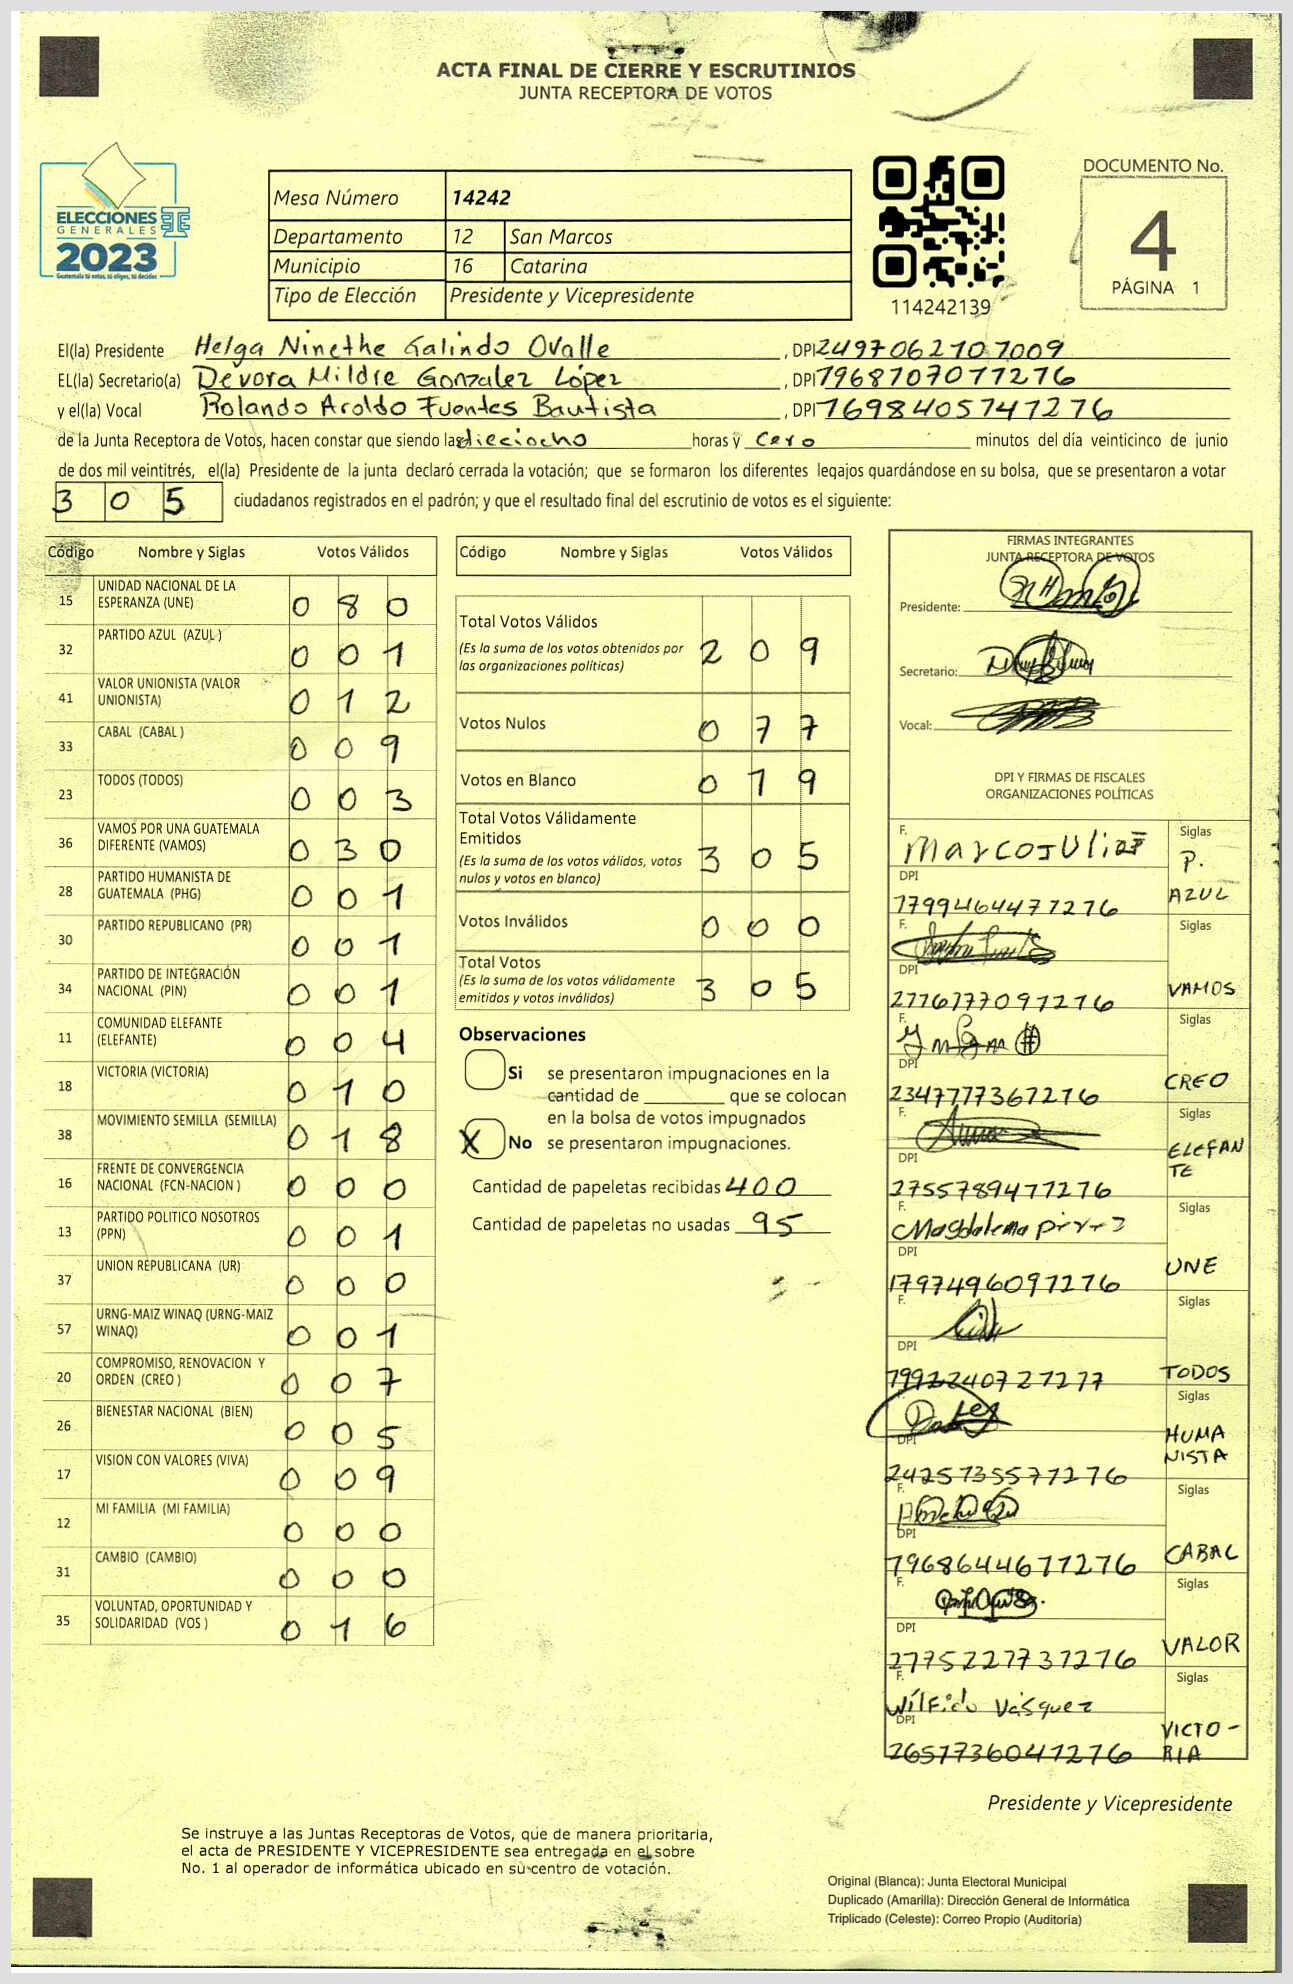 ACTA FINAL DE CIERRE Y ESCRUTINIOS
JUNTA RECEPTORA DE VOTOS
ELECCIONES
GENERALES
2023
Guatemala tú votas, tú eliges, tú decides
Mesa Número 14242
Departamento 12 San Marcos
Municipio 16 Catarina
Tipo de Elección Presidente y Vicepresidente
114242139
DOCUMENTO No.
4
PÁGINA 1
El(la) Presidente Helga Ninethe Galindo Ovalle , DPI 2497062107009
EL(la) Secretario(a) Devora Mildre Gonzalez López , DPI 1968707077276
y el(la) Vocal Rolando Aroldo Fuentes Bautista , DPI 1698405741276
de la Junta Receptora de Votos, hacen constar que siendo las dieciocho horas y cero minutos del día veinticinco de junio
de dos mil veintitrés, el(la) Presidente de la junta declaró cerrada la votación; que se formaron los diferentes legajos guardándose en su bolsa, que se presentaron a votar
3 0 5 ciudadanos registrados en el padrón; y que el resultado final del escrutinio de votos es el siguiente:
Código Nombre y Siglas Votos Válidos
15 UNIDAD NACIONAL DE LA ESPERANZA (UNE) 0 8 0
32 PARTIDO AZUL (AZUL ) 0 0 1
41 VALOR UNIONISTA (VALOR UNIONISTA) 0 1 2
33 CABAL (CABAL ) 0 0 9
23 TODOS (TODOS) 0 0 3
36 VAMOS POR UNA GUATEMALA DIFERENTE (VAMOS) 0 3 0
28 PARTIDO HUMANISTA DE GUATEMALA (PHG) 0 0 1
30 PARTIDO REPUBLICANO (PR) 0 0 1
34 PARTIDO DE INTEGRACIÓN NACIONAL (PIN) 0 0 1
11 COMUNIDAD ELEFANTE (ELEFANTE) 0 0 4
18 VICTORIA (VICTORIA) 0 1 0
38 MOVIMIENTO SEMILLA (SEMILLA) 0 1 8
16 FRENTE DE CONVERGENCIA NACIONAL (FCN-NACION ) 0 0 0
13 PARTIDO POLITICO NOSOTROS (PPN) 0 0 1
37 UNION REPUBLICANA (UR) 0 0 0
57 URNG-MAIZ WINAQ (URNG-MAIZ WINAQ) 0 0 1
20 COMPROMISO, RENOVACION Y ORDEN (CREO ) 0 0 7
26 BIENESTAR NACIONAL (BIEN) 0 0 5
17 VISION CON VALORES (VIVA) 0 0 9
12 MI FAMILIA (MI FAMILIA) 0 0 0
31 CAMBIO (CAMBIO) 0 0 0
35 VOLUNTAD, OPORTUNIDAD Y SOLIDARIDAD (VOS ) 0 1 6
Código Nombre y Siglas Votos Válidos
Total Votos Válidos
(Es la suma de los votos obtenidos por
las organizaciones políticas) 2 0 9
Votos Nulos 0 7 7
Votos en Blanco 0 1 9
Total Votos Válidamente
Emitidos
(Es la suma de los votos válidos, votos
nulos y votos en blanco) 3 0 5
Votos Inválidos 0 0 0
Total Votos
(Es la suma de los votos válidamente
emitidos y votos inválidos) 3 0 5
Observaciones
Si se presentaron impugnaciones en la
cantidad de ________ que se colocan
en la bolsa de votos impugnados
X No se presentaron impugnaciones.
Cantidad de papeletas recibidas 400
Cantidad de papeletas no usadas 95
FIRMAS INTEGRANTES
JUNTA RECEPTORA DE VOTOS
Presidente:
Secretario:
Vocal:
DPI Y FIRMAS DE FISCALES
ORGANIZACIONES POLÍTICAS
F. Siglas
P. AZUL
DPI
1799464471276
F. Siglas
DPI VAMOS
F. Siglas
DPI CREO
2347777367276
F. Siglas
DPI ELEFANTE
2755789471276
F. Magdalena Siglas
DPI UNE
1797496091276
F. Siglas
DPI TODOS
F. Siglas
DPI HUMANISTA
2425735571276
F. Siglas
DPI CABAL
1968644671276
F. Siglas
DPI VALOR
2775227731276
F. Wilfido Vásquez Siglas
DPI VICTO-
RIA
2657736041276
Presidente y Vicepresidente
Se instruye a las Juntas Receptoras de Votos, que de manera prioritaria,
el acta de PRESIDENTE Y VICEPRESIDENTE sea entregada en el sobre
No. 1 al operador de informática ubicado en su centro de votación.
Original (Blanca): Junta Electoral Municipal
Duplicado (Amarilla): Dirección General de Informática
Triplicado (Celeste): Correo Propio (Auditoría)